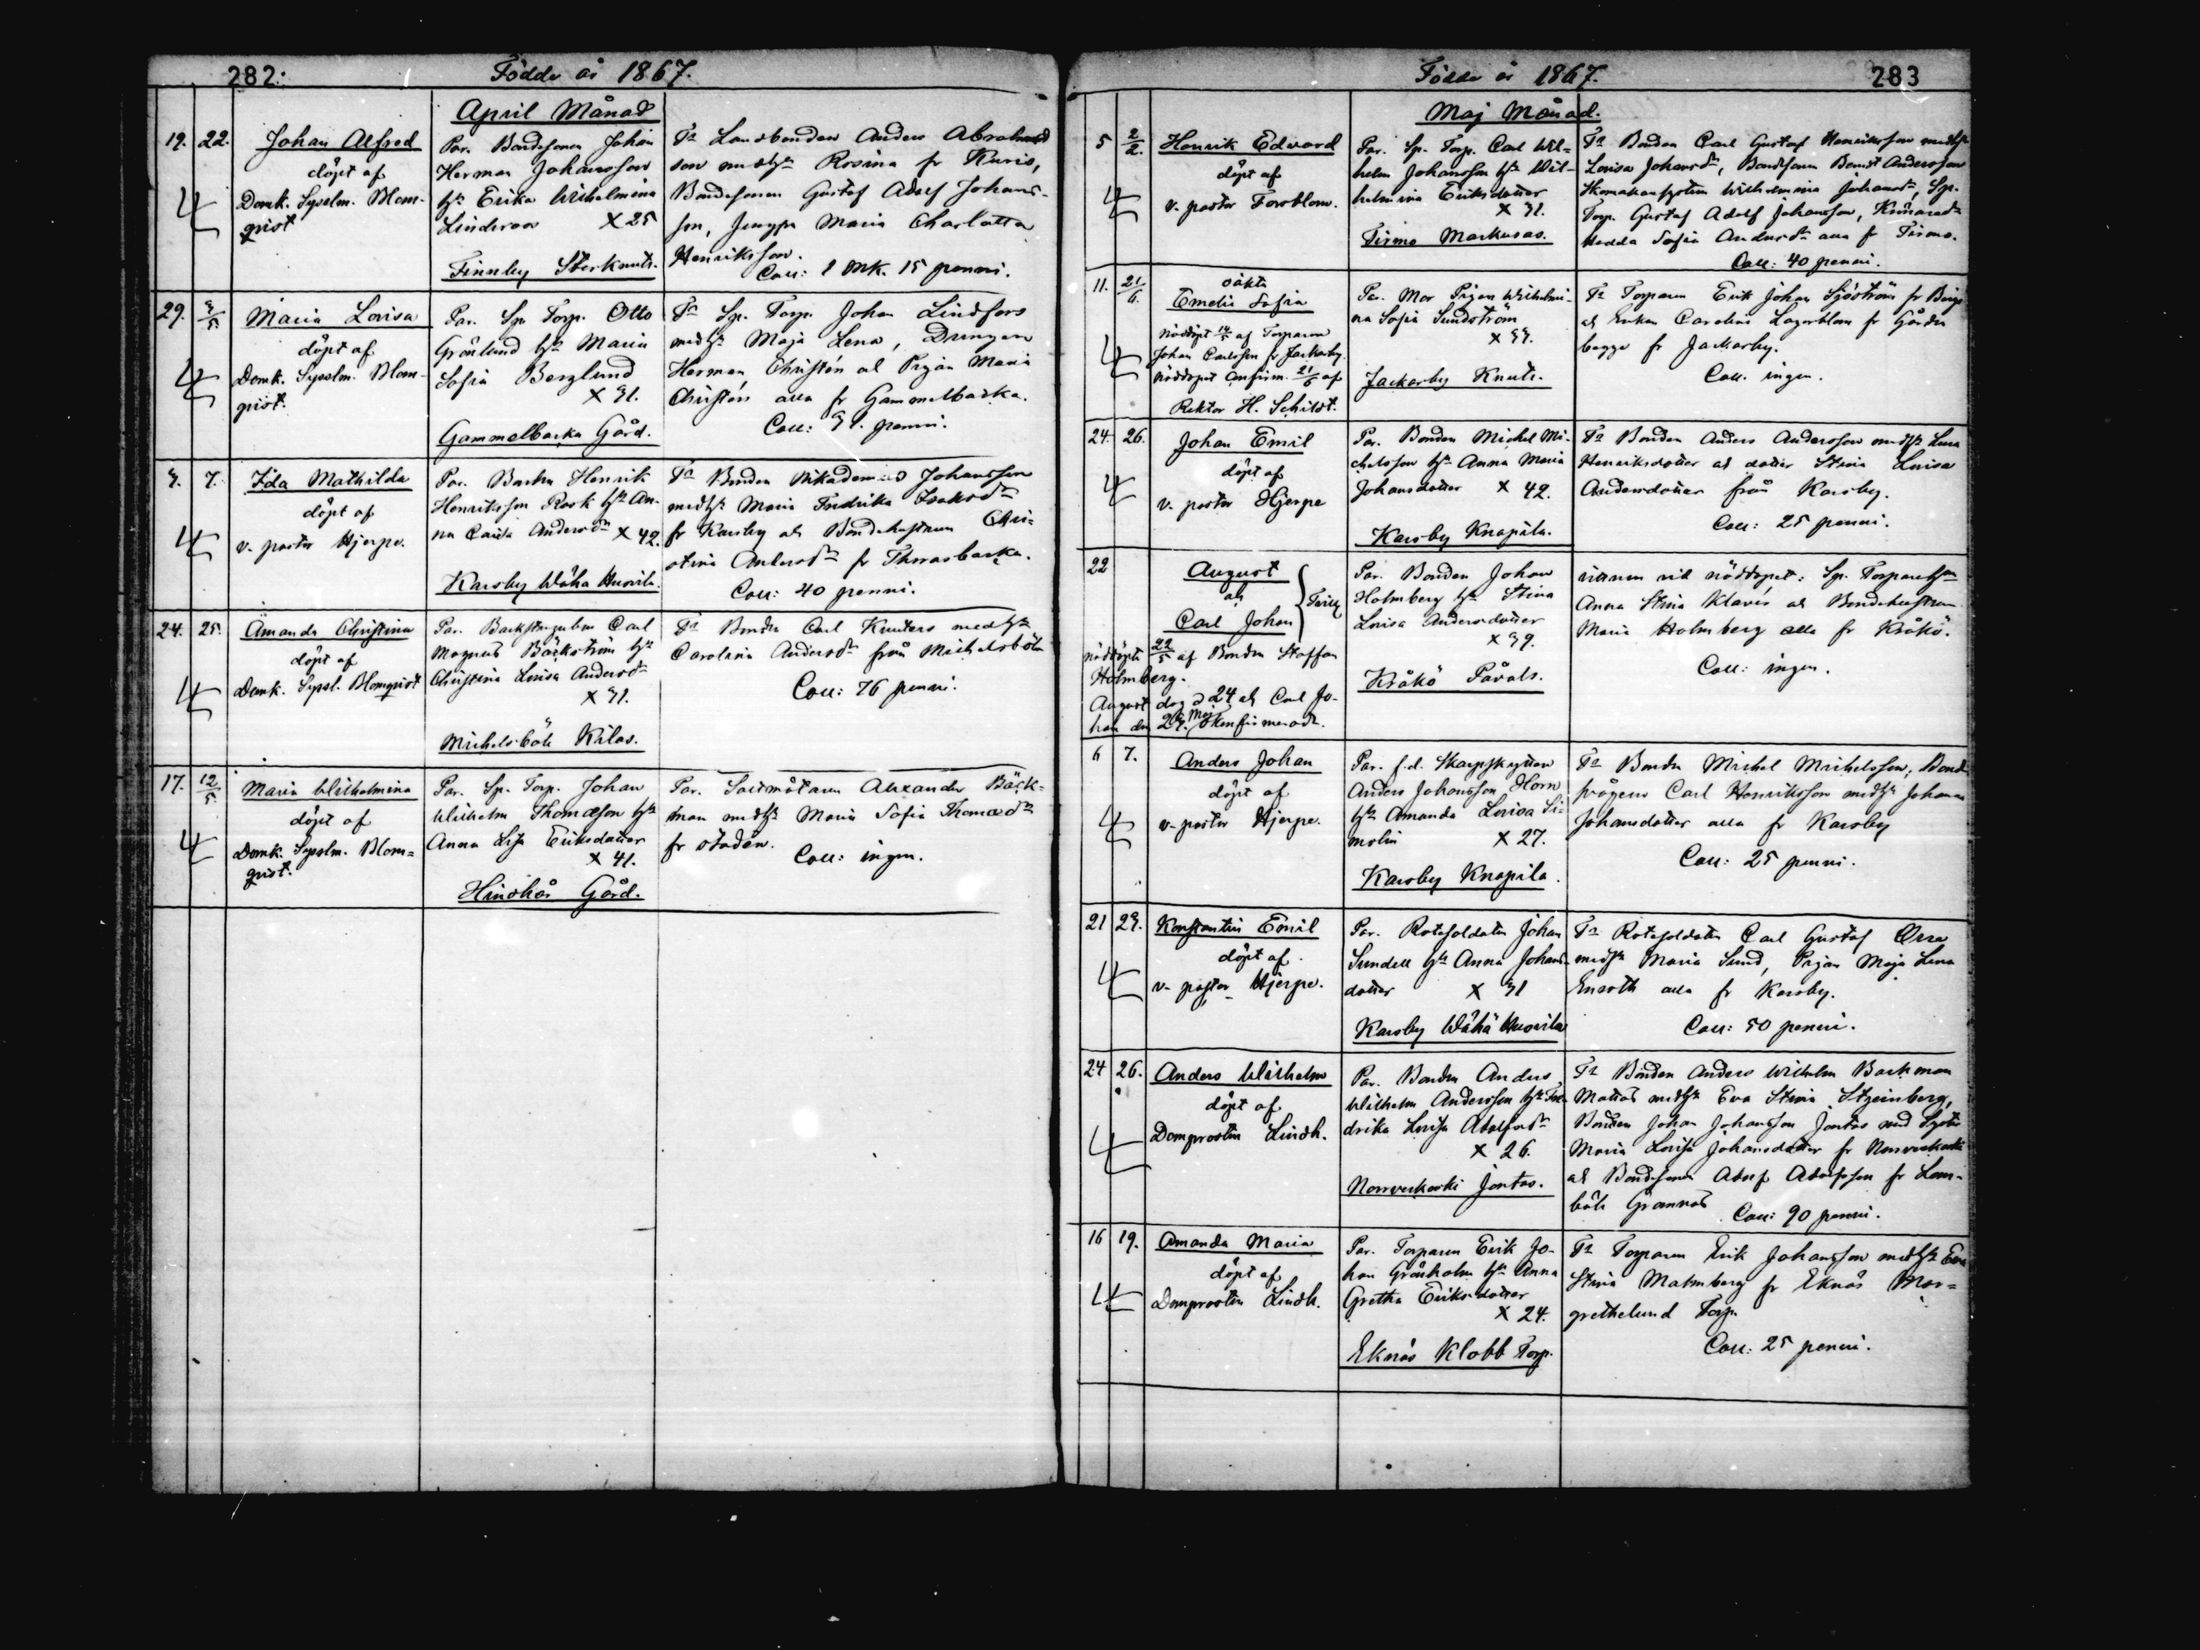 282.
Födde år 1867.
April Månad
19. 22. Johan Alfred
döpt af
Domk. Sysslm. Blom-
qvist
Par. Bondesonen Johan
Herman Johansson
hst Erika Wilhelmina
Lindroos × 25
Finnby Sterknuts.
Fr Landbonden Anders Abraham
son med hst Rosina fr Kuris,
Bondesonen Gustaf Adolf Johans-
son, Jungfr Maria Charlotta
Henriksson.
Coll: 1 Mk. 15 penni.
29. 3/5 Maria Lovisa
döpt af
Domk. Sysslm. Blom-
qvist.
Par. Sp. Torp. Otto
Grönlund hst Maria
Sofia Berglund
× 31.
Gammelbacka Gård.
Fr Sp. Torp. Johan Lindfors
med hst Maja Lena, Drängen
Herman Christén och Pigan Maria
Christén alla fr Gammelbacka.
Coll: 31. penni.
3. 7. Ida Mathilda
döpt af
v. pastor Hjerpe.
Par. Bonden Henrik
Henriksson Rosk hst An-
na Caisa Andersdr × 42.
Karsby Wäha Huovila.
Fr Bonden Nikodemus Johansson
med hst Maria Fredrika Isaksdr
fr Karsby och Bondehustrun Chri-
stina Andersdr fr Thorasbacka.
Coll: 40 penni.
24. 25. Amanda Christina
döpt af
Domk. Syssl. Blomqvist
Par. Backstugubon Carl
Magnus Bäckström hst
Christina Lovisa Andersdr
× 31.
Michelsböle Kilas.
Fr Bonden Carl Knuters med hst
Carolina Andersdr från Michelsböle
Coll: 76 penni.
17. 12/5 Maria Wilhelmina
döpt af
Domk. Sysslm. Blom=
qvist.
Par. Sp. Torp. Johan
Wilhelm Thomasson hst
Anna Lisa Eriksdotter
× 41.
Hindhår Gård.
Par. Saltmätaren Alexander Bäck-
man med hst Maria Sofia Thomasdr
fr staden.
Coll: ingen.
Födde år 1867.
283
Maj Månad.
5 2/2. Henrik Edvard
döpt af
v. pastor Forsblom.
Par. Sp. Torp. Carl Wil-
helm Johansson hst Wil-
helmina Eriksdotter
× 31.
Tirmo Markusas.
Fr Bonden Carl Gustaf Henriksson med hst
Lovisa Johansdr, Bondesonen Bernt Andersson
Skomakarhustrun Wilhelmina Johansdr, Sp.
Torp. Gustaf Adolf Johansson,
Hedda Sofia Andersdr alla fr Tirmo.
Coll: 40 penni.
11. 21/6. oäkta
Emelie Sofia
Nöddöpt 14/5 af Torparen
Johan Carlsson fr Jackarby.
Nöddopet confirm. 21/6 af
Rektor H. Schildt.
Par. Mor Pigan Wilhelmi-
na Sofia Sundström
× 33.
Jackarby Knuts.
Fr Torparen Erik Johan Sjöström fr Berg
och Enkan Carolina Lagerblom fr Gården
begge fr Jackarby.
Coll. ingen.
24. 26. Johan Emil
döpt af
v. pastor Hjerpe
Par. Bonden Michel Mi-
chelsson hst Anna Maria
Johansdotter × 42.
Karsby Knapila.
Fr Bonden Anders Andersson med hst Lena
Henriksdotter och dotter Stina Lovisa
Andersdotter från Karsby.
Coll: 25 penni.
22 August
och
Carl Johan
Tvill.
nöddöpte 22/5 af Bonden Staffan
Holmberg.
August dog d 24 och Carl Jo-
han den 27. Maj. Okonfirmerade.
Par. Bonden Johan
Holmberg hst Stina
Lovisa Andersdotter
× 39.
Kråkö Påvals.
vittnen vid nöddopet: Sp. Torparehst
Anna Stina Klavés och Bondehustrun
Maria Holmberg alla fr Kråkö.
Coll: ingen.
6 7. Anders Johan
döpt af
v. pastor Hjerpe.
Par. f.d. Skarpskytten
Anders Johansson Horn
hst Amanda Lovisa Si-
molin × 27.
Karsby Knapila.
Fr Bonden Michel Michelsson, Bond
Carl Henriksson med hst Johanna
Johansdotter alla fr Karsby
Coll: 25 penni.
21 23. Konstantin Emil
döpt af
v. pastor Hjerpe.
Par. Rotesoldaten Johan
Sundell hst Anna Johans-
dotter × 31
Karsby Wähä Huovila
Fr Rotesoldaten Carl Gustaf Orra
med hst Maria Sund, Pigan Maja Lena
Enroth alla fr Karsby.
Coll: 50 penni.
24 26. Anders Wilhelm
döpt af
Domprosten Lindh.
Par. Bonden Anders
Wilhelm Andersson hst Fre-
drika Lovisa Adolfsdr
× 26.
Norrveckoski Jontas.
Fr Bonden Anders Wilhelm Backman
Mattas med hst Eva Stina Stzeinberg,
Bonden Johan Johansson Jontas med Syster
Maria Lovisa Johansdotter fr Norrveckoski
och Bondesonen Adolf Adolfsson fr Lom-
böle Grannas
Coll: 90 penni.
16 19. Amanda Maria
döpt af
Domprosten Lindh.
Par. Torparen Erik Jo-
han Grönholm hst Anna
Gretha Eriksdotter
× 24.
Eknäs Klobb Torp.
Fr Torparen Erik Johansson med hst Eva
Stina Malmberg fr Eknäs Mar=
grethelund Torp.
Coll: 25 penni.